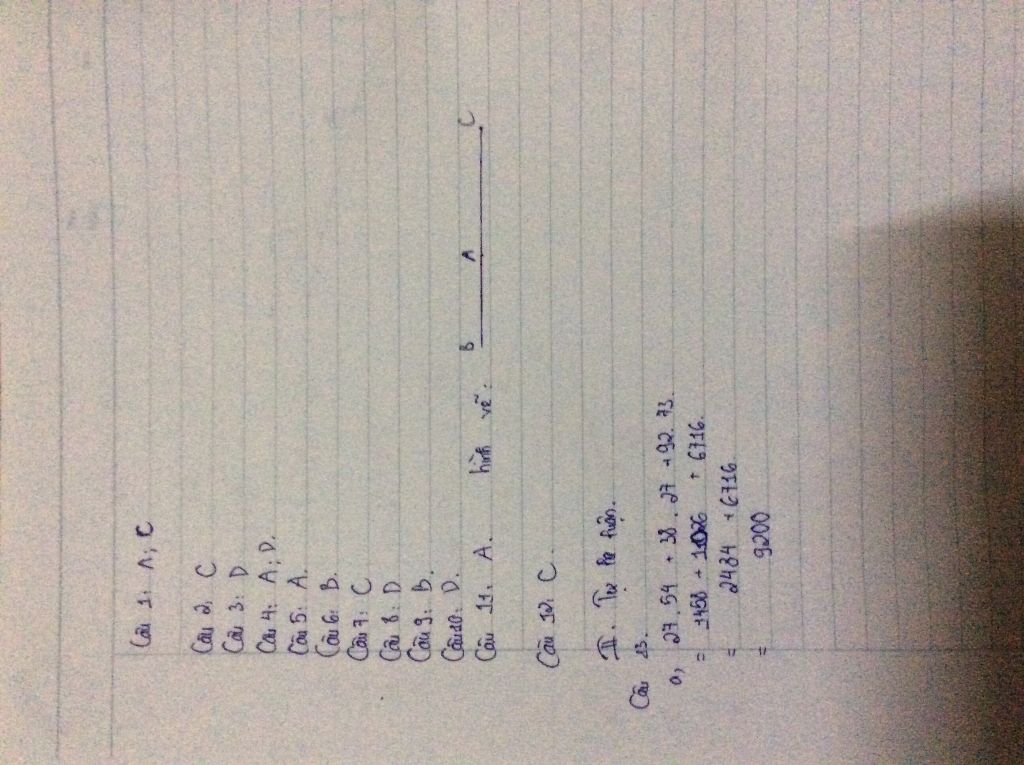 Câu 1: A; C
Câu 2: C
Câu 3: D
Câu 4: A; D.
Câu 5: A.
Câu 6: B.
Câu 7: C
Câu 8: D
Câu 9: B.
Câu 10: D.
Câu 11: A. hình vẽ: B A C
Câu 12: C.
II. Tự luận.
Câu 13.
a, 27.54 + 38.27 + 92.73.
= 1458 + 1026 + 6716.
= 2484 + 6716
= 9200